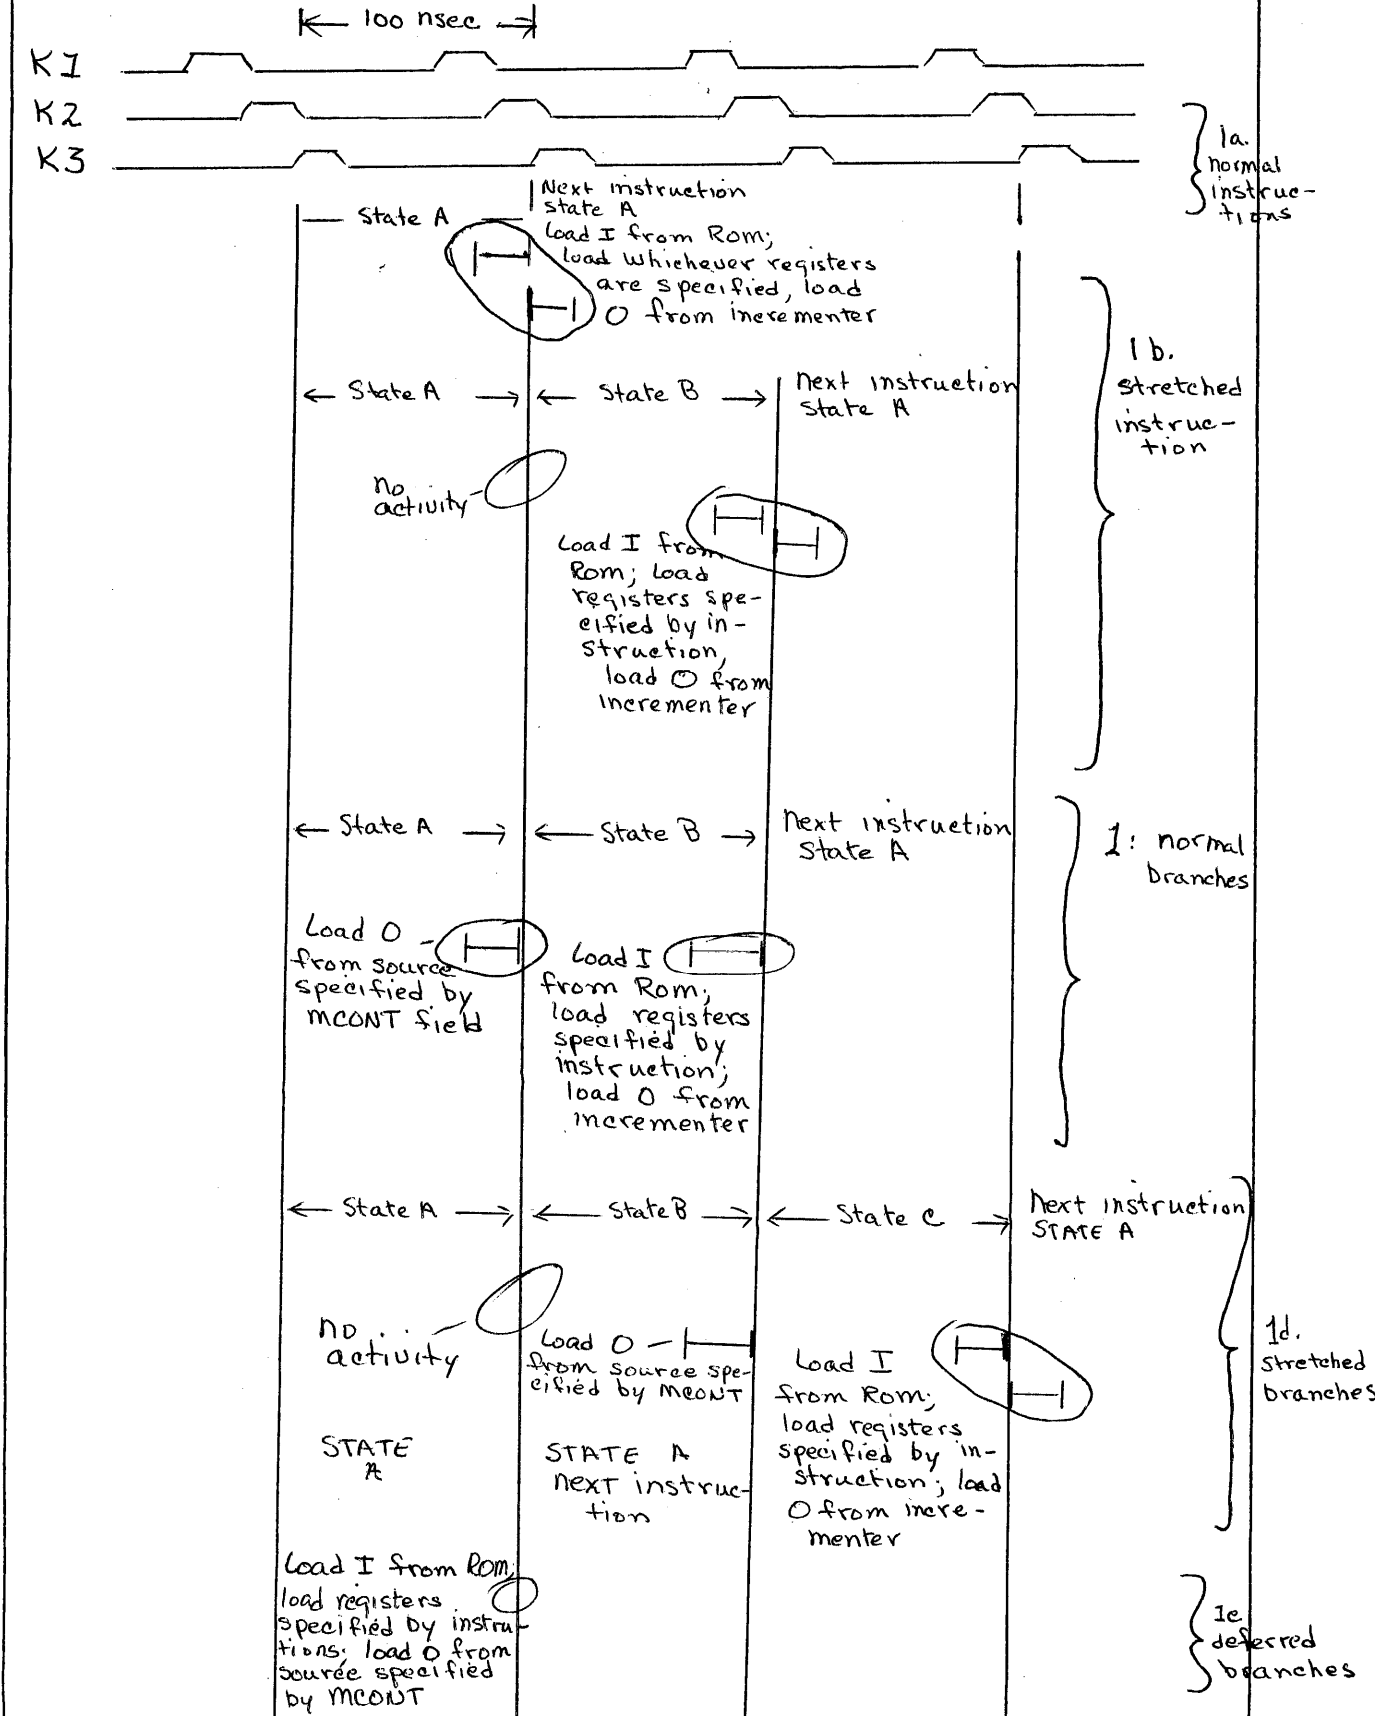 100 nsec
K1
K2
K3
1a.
normal
instruc-
tions
State A
Next instruction
State A
Load I from Rom;
load whichever registers
are specified, load
O from incrementer
1b.
stretched
instruc-
tion
State A
State B
next instruction
State A
no
activity
Load I from
Rom; load
registers spe-
cified by in-
struction,
load O from
incrementer
State A
State B
next instruction
State A
1: normal
branches
Load O
from source
specified by
MCONT field
Load I
from Rom;
load registers
specified by
instruction;
load O from
incrementer
State A
State B
State C
next instruction
STATE A
no
activity
Load O
from source spe-
cified by MCONT
Load I
from Rom;
load registers
specified by in-
struction; load
O from incre-
menter
1d.
stretched
branches
STATE
A
STATE A
next instruc-
tion
Load I from ROM;
load registers
specified by instru-
tions; load O from
source specified
by MCONT
1e
deferred
branches